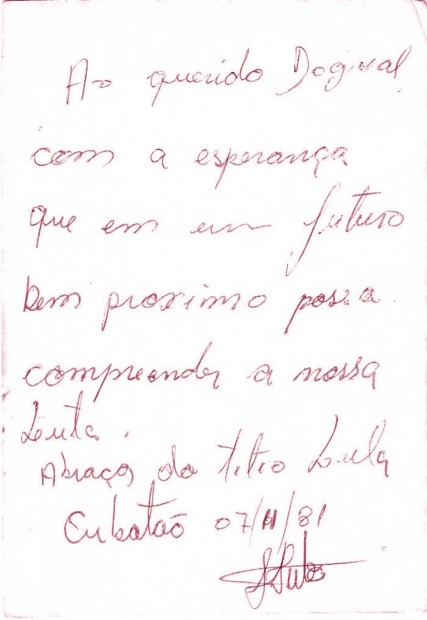 Ao querido Dogival
com a esperança
que em um futuro
bem proximo possa
compreender a nossa
Luta.
Abraços do titio Lula
Cubatão 07/11/81